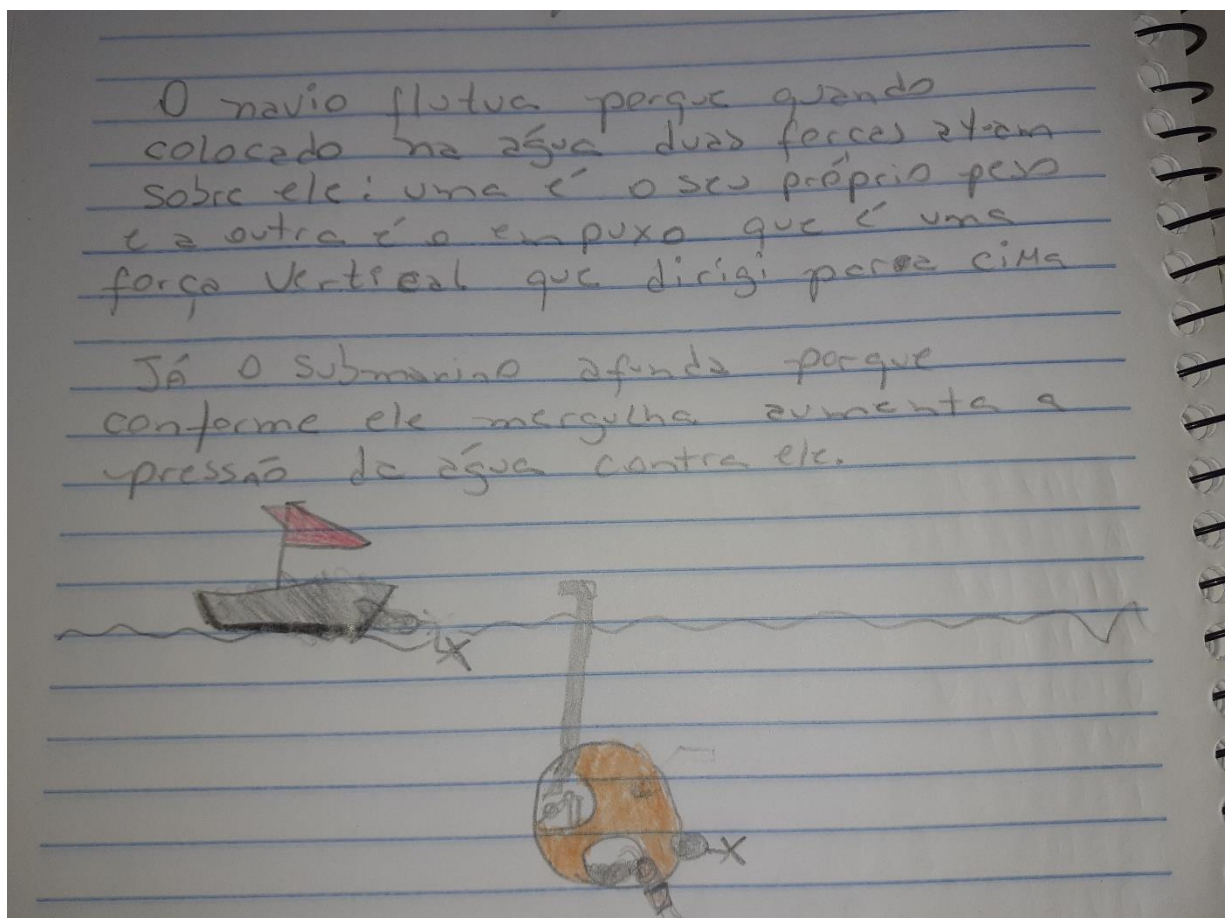 O navio flutua porque quando
colocado na água duas forças atuam
sobre ele: uma é o seu próprio peso
e a outra é o empuxo que é uma
força vertical que dirigi para cima
JÁ o submarino afunda porque
conforme ele mergulha aumenta a
pressão da água contra ele.